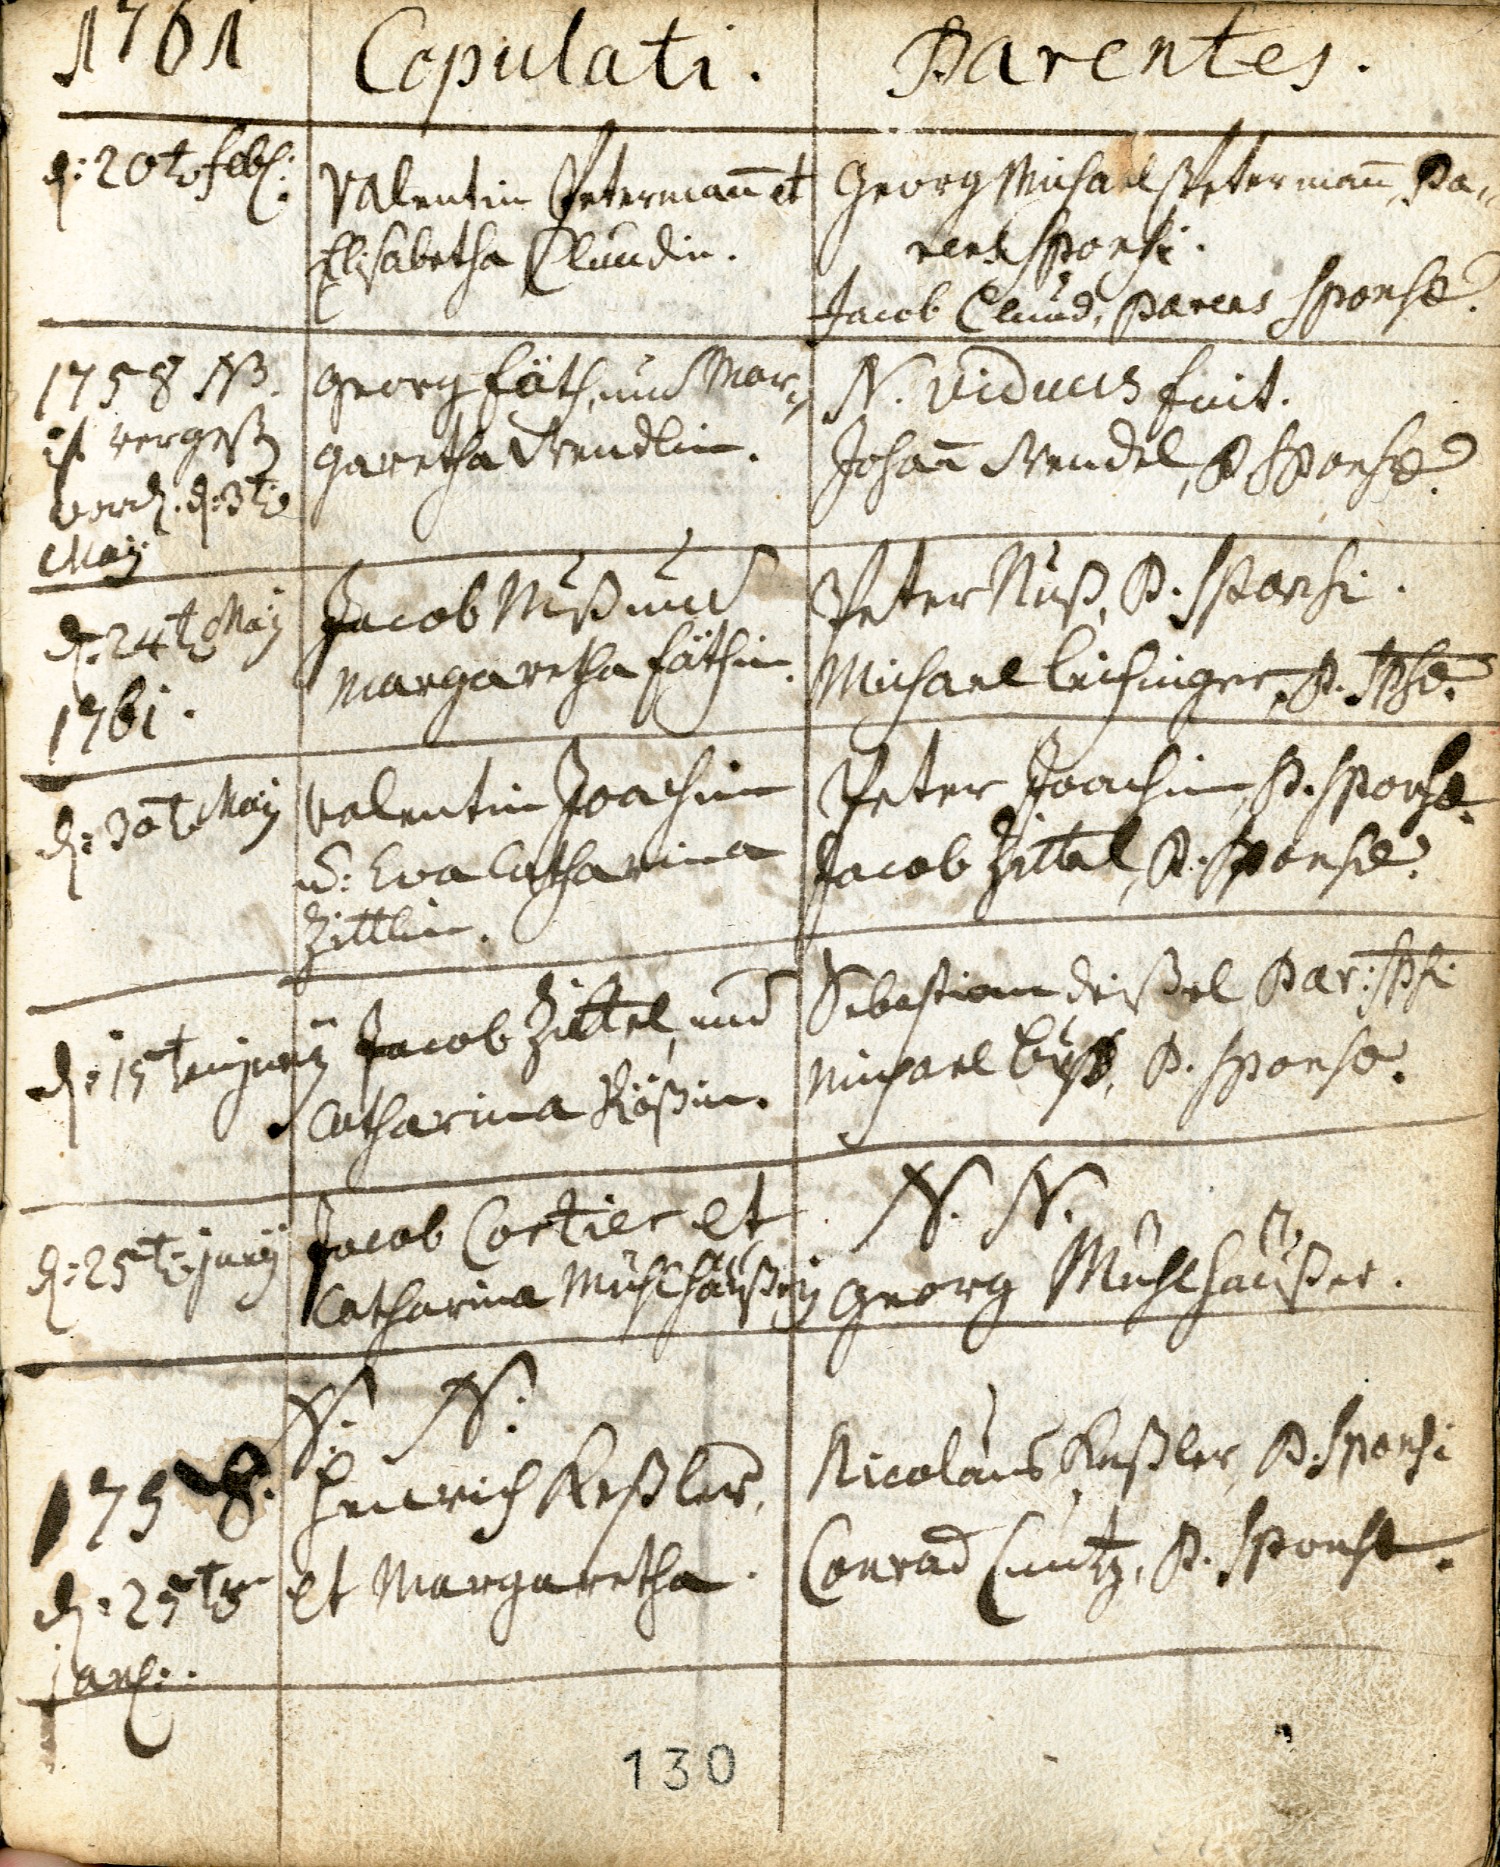 1761 Copulati. Parentes.
d: 20t. febr:
Valentin Petermañ et
Elisabetha Claudin.
Georg Michael Petermañ, Pa-
rens Sponsi.
Jacob Claud, Parens Sponsæ.
1758 NB.
ist vergeß
word. d: 3t.
Maij
Georg Fäth, und Mar-
garetha Wendlin.
N. viduus fuit.
Johañ Wendel, P Sponsæ.
d: 24t Maij
1761.
Jacob Nuß und
Margaretha Fäthin.
Peter Nuß, P. Sponsi.
Michael Leichinger, P. Spsæ.
d: 30t. Maij
Valentin Joachim
u: Eva Catharina
Zittlin.
Peter Joachim, P. Sponsi
Jacob Zittel, P. Sponsæ.
d: 15t Junij
Jacob Zittel, und
Catharina Rößin.
Sebastian Par: Spsi
Michael P. Sponsæ.
d: 25t. Junij
Jacob Cortier et
Catharina Mühlhäußerin
N. N.
Georg Mühlhäußer.
1758.
d: 25t
Jan:
N. N.
Henrich Keßler,
et Margaretha.
Nicolaus Keßler, P. Sponsi
Conrad Cuntz, P. Sponsæ.
130